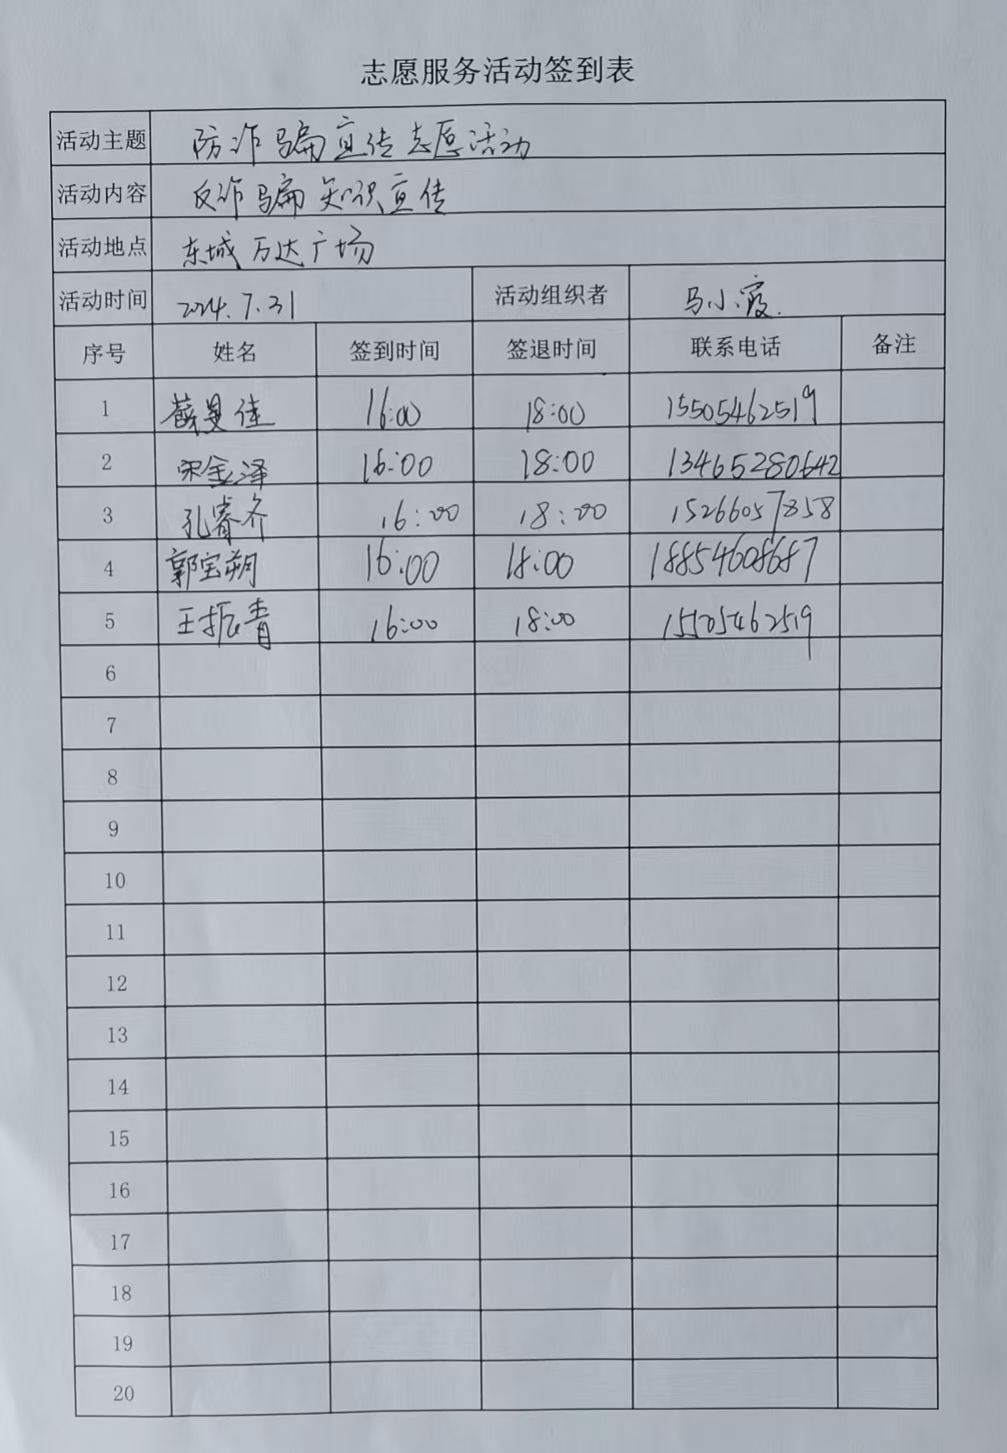 志愿服务活动签到表
活动主题 防诈骗宣传志愿活动
活动内容 反诈骗知识宣传
活动地点 东城万达广场
活动时间 2024.7.31 活动组织者 马小霞
序号 姓名 签到时间 签退时间 联系电话 备注
1 薛曼佳 16:00 18:00 15505462519
2 宋金泽 16:00 18:00 13465280642
3 孔睿齐 16:00 18:00 15266057358
4 郭宝朔 16:00 18:00 18854608687
5 王振青 16:00 18:00 15505462519
6
7
8
9
10
11
12
13
14
15
16
17
18
19
20